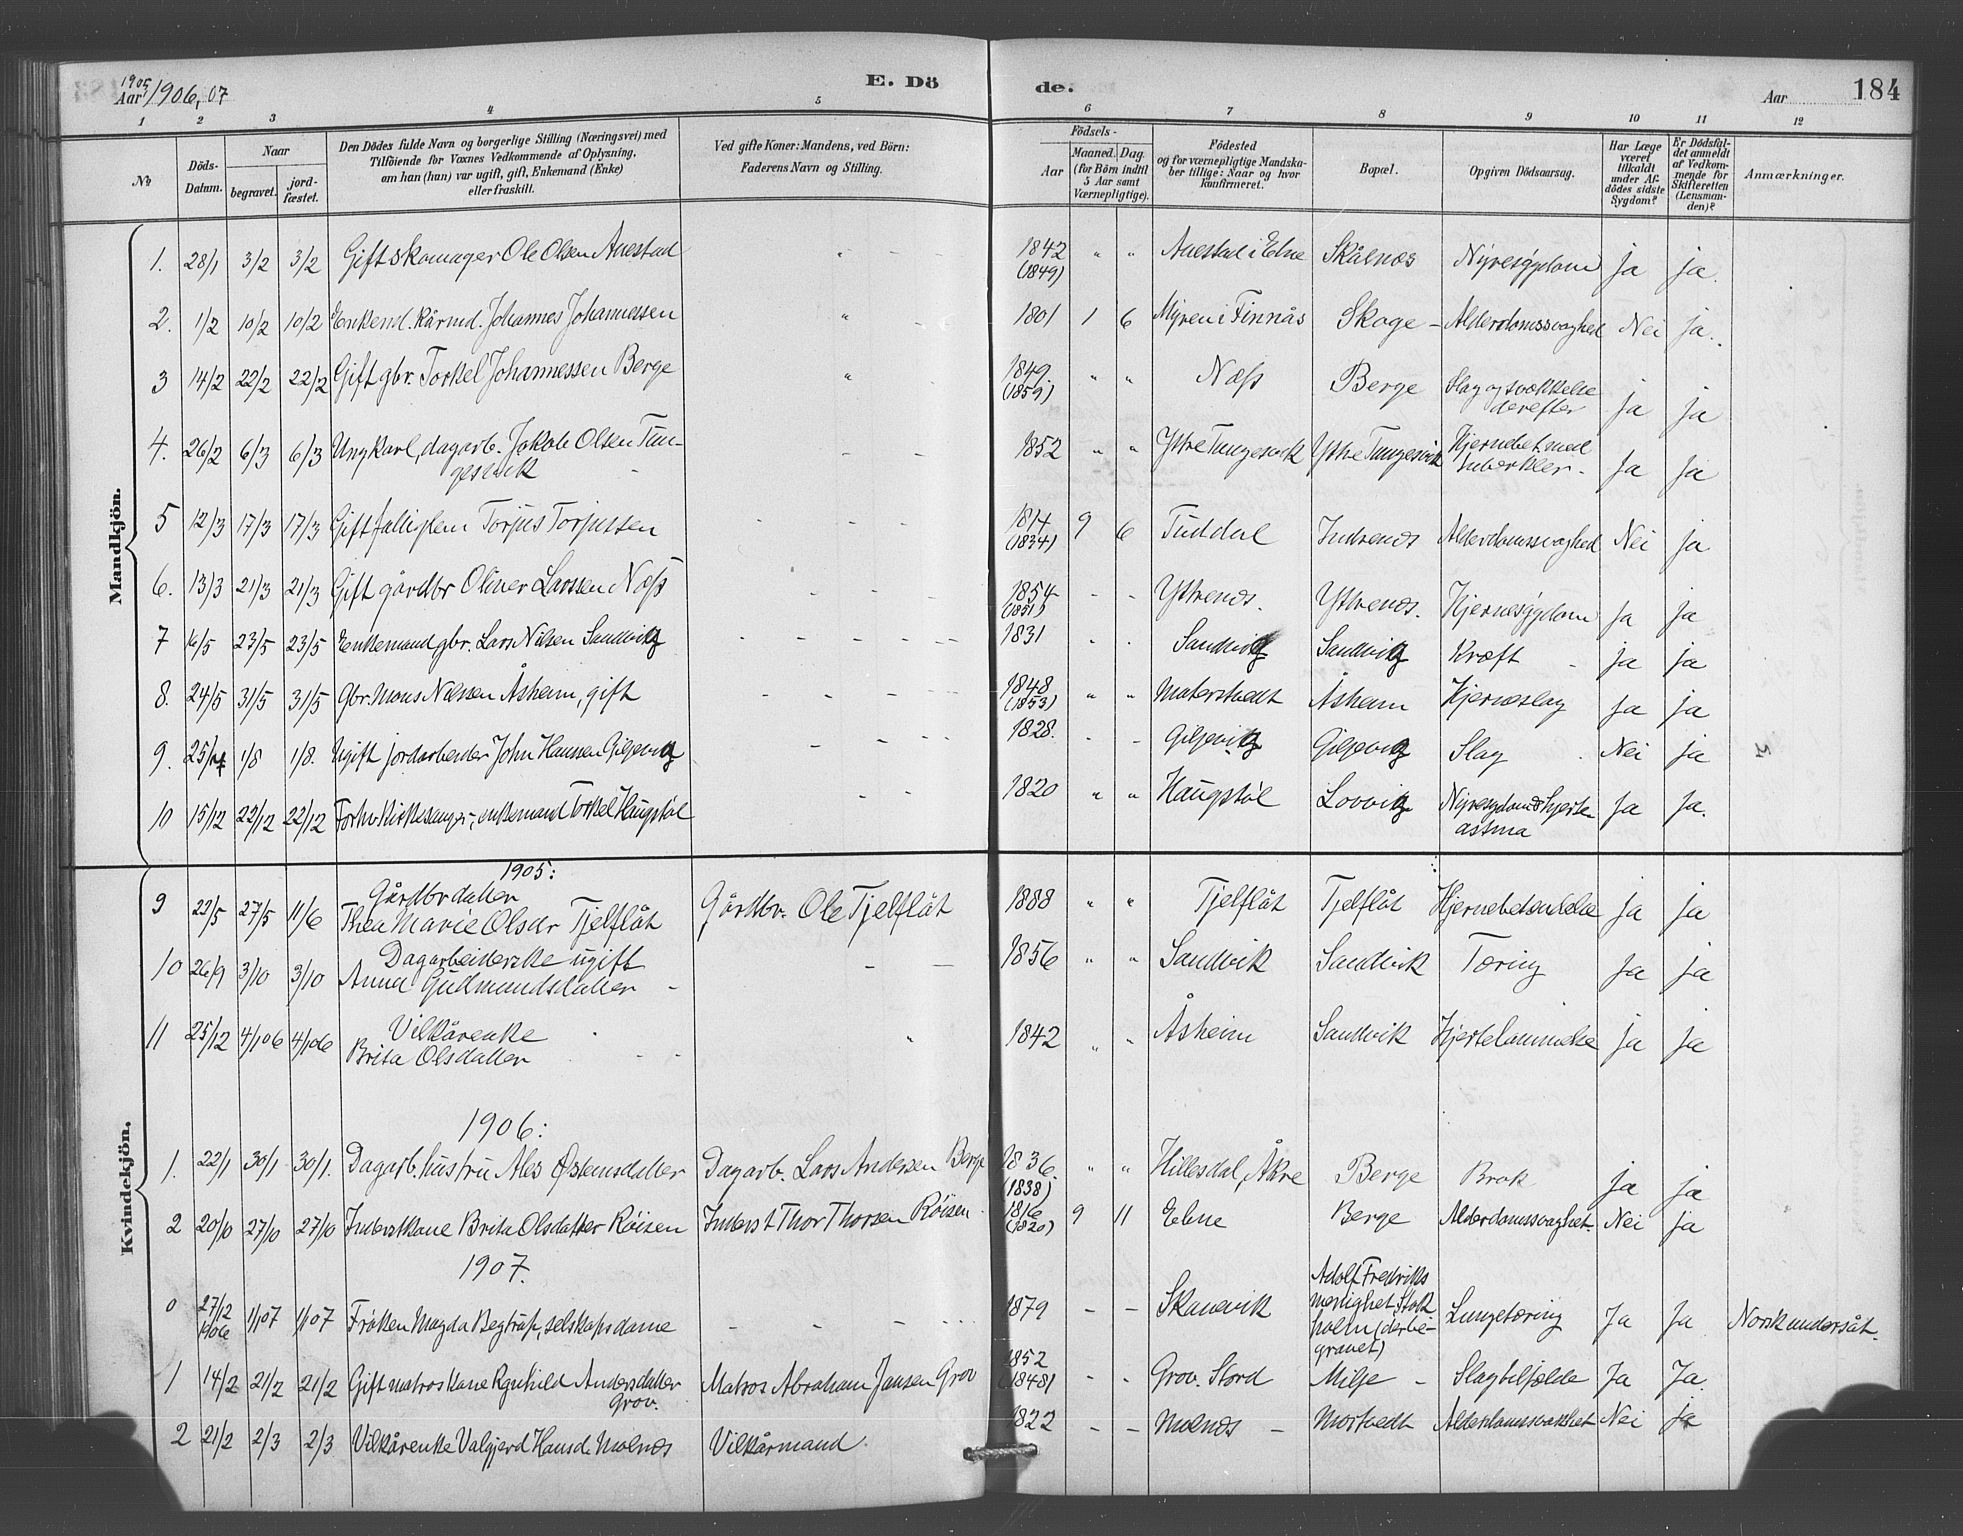 1905
Aar 1906, 07
E. Dö
de.
Aar
184
1 2 3 4 5 6 7 8 9 10 11 12
No
Döds-Datum.
Naar
begravet.
jord-fæstet.
Den Dödes fulde Navn og borgerlige Stilling (Næringsvei) med
Tilföiende for Voxnes Vedkommende af Oplysning,
om han (hun) var ugift, gift, Enkemand (Enke)
eller fraskilt.
Ved gifte Koner: Mandens, ved Börn:
Faderens Navn og Stilling.
Födsels-
Aar
Maaned. Dag.
(for Börn indtil
5 Aar samt
Værnepligtige).
Födested
og for værnepligtige Mandska-
ber tillige: Naar og hvor
konfirmeret.
Bopæl.
Opgiven Dödsaarsag.
Har Læge
været
tilkaldt
under Af-
dödes sidste
Sygdom?
Er Dödsfal-
det anmeldt
af Vedkom-
mende for
Skifteretten
(Lensman-
den)?
Anmærkninger.
Mandkjön.
1. 28/1 3/2 3/2 Gift skomager Ole Olsen Auestad " 1842 (1849) " " Auestad i Ølne Skålnæs Nyresygdom ja ja.
2. 1/2 10/2 10/2 Enkem. kårmd. Johannes Johannessen " 1801 1 6 Myren i Finnås Skoge - Alderdomssvaghed Nei ja.
3 14/2 22/2 22/2 Gift gbr. Torkel Johannessen Berge " 1849 (1859) " " Næss Berge Slag og svækkelse derefter ja ja
4. 26/2 6/3 6/3 Ungkarl, dagarb. Jakob Olsen Tun-
gesvik - - 1852 " " Ytre Tungesvik Ytre Tungesvik Hjernebet. med tuberkler - ja ja
5 12/3 17/3 17/3 Gift fattiglem Torjus Torjussen - - - 1814 (1834) 9 6 Tuddal Indrenæs Alderdomssvaghed Nei ja
6. 13/3 21/3 21/3 Gift gårdbr Oliner Larssen Næss - - - 1854 (1851) - - Ytrenæs. Ytrenæs. Hjernesygdom ja ja
7 16/5 23/5 23/5 Enkemand gbr. Lars Nilsen Sandvik - - - 1831 " . Sandvik Sandvik Kræft - ja ja
8. 24/5 31/5 31/5 Gbr. Mons Nilssen Åsheim, gift - - - 1848 (1853) " " Matershedt Åsheim Hjerneslag ja ja
9. 25/7 1/8 1/8. Ugift jordarbeider John Hanssen Giljevik - - - 1828. - - Giljevik Giljevik Slag . Nei ja
10 15/12 22/12 22/12 Forhv. Kirkesanger, enkemand Torkel Haugstøl - - 1820 " " Haugstøl Lovvik Nyresygdom & hjerte astma ja ja.
Kvindekjön.
1905:
9 22/5 27/5 11/6 Gårdbrdatter
Thea Marie Olsdr Tjelflåt Gårdbr. Ole Tjelflåt 1888 " " Tjelflåt Tjelflåt Hjernebetændelse ja ja
10 26/9 3/10 3/10 Dagarbeiderske ugift
Anna Gudmundsdatter - - - 1856 " " Sandvik Sandvik Tæring ja ja
11 25/12 4/1 06 4/1 06 Vilkårenke
Brita Olsdatter - - " 1842 " " Åsheim Sandvik Hjertelammelse ja ja
1906:
1. 22/1 30/1 30/1. Dagarb. hustru Ales Østensdatter Dagarb. Lars Andersen Berge 1836 (1838) " " Hillesdal, Åkre Berge Brok ja ja
2 20/10 27/10 27/10 Inderstkone Brita Olsdatter Røisen Inderst Thor Thorsen Røisen 1816 (1820) 9 11 Ølne Berge Alderdomssvaghet. Nei ja
1907.
0 27/12 1906 1/1 07 1/1 07 Frøken Magda Begtrup, selskapsdame - - - 1879 - - Skånevik Adolf Fredriks
menighet, Stok
holm (der be-
gravet) Lungetæring Ja Ja Norsk undersåt.
1 14/2 21/2 21/2 Gift matroskone Ragnhild Andersdatter
Grov. Matros Abraham Jansen Grov 1852 (1848) - - Grov. Stord Milje - Slagtilfælde Ja Ja.
2 21/2 2/3 2/3 Vilkårenke Valgjerd Hansd. Molnæs Vilkårmand. 1822 - - Molnæs - Mortvedt Alderdomssvakhet Nei ja